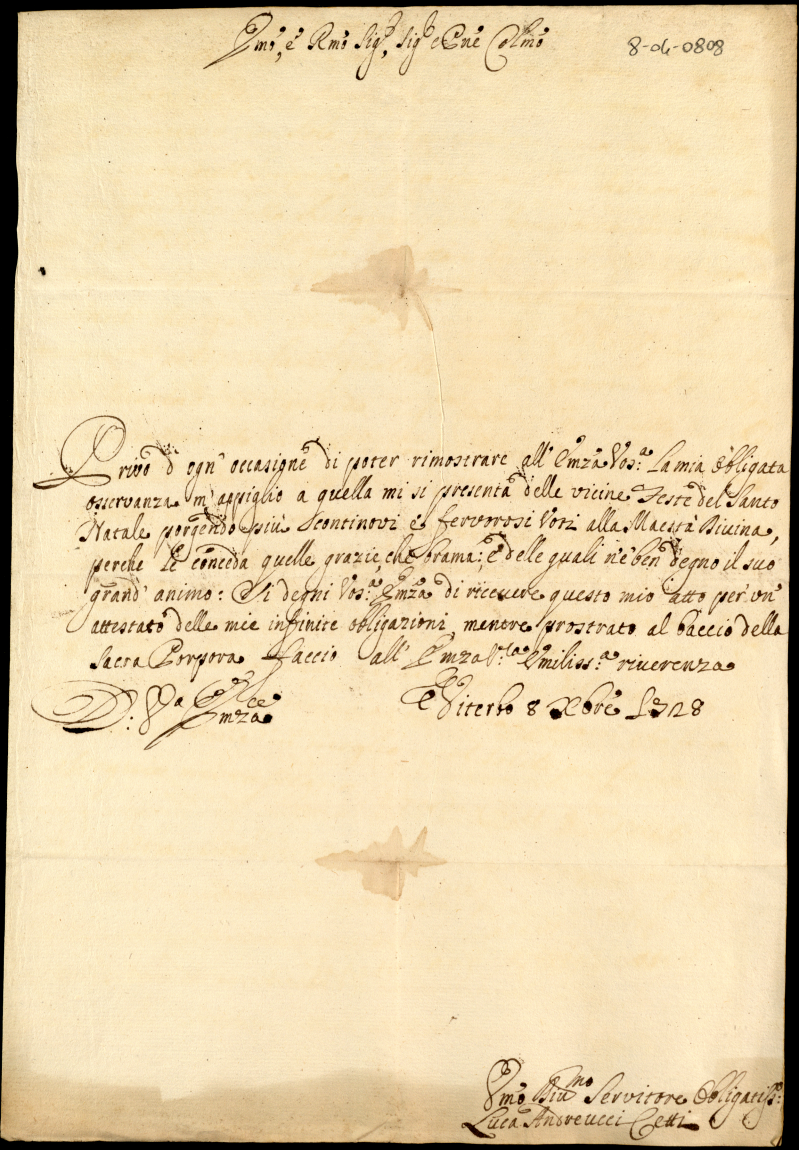 Emo, e Rmo Sig.r, Sig.r e Pne Colmo
8-04-0808
Privo d'ogn'occasione di poter rimostrare all'Emza Vos.a La mia obligata
osservanza m'appiglio a quella mi si presenta delle vicine Feste del Santo
Natale porgendo più continovi e fervorosi Voti alla Maestà Divina,
perche le conceda quelle grazie, che brama; e delle quali n'è ben degno il suo
grand'animo: Si degni Vos.a Emza di ricevere questo mio atto per un'
attestato delle mie infinite obligazioni, mentre prostrato al baccio della
Sacra Porpora faccio all'Emza V.ra Umiliss.a riverenza
D: V.a Emza
Viterbo 8 Xbre 1728
Umo Servitore Obligatiss.:
Luca Andreucci Cetti